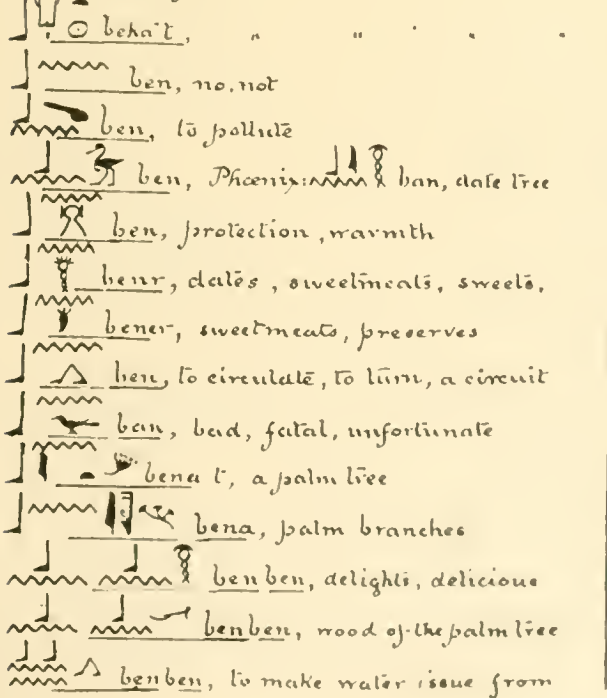 behat, " " " " "
ben, no, not
ben, to pollute
ben, Phœnix: ban, date tree
ben, protection, warmth
benr, dates, sweetmeats, sweets,
bener, sweetmeats, preserves
ben, to circulate, to turn, a circuit
ban, bad, fatal, unfortunate
bena t, a palm tree
bena, palm branches
benben, delights, delicious
benben, wood of the palm tree
benben, to make water issue from